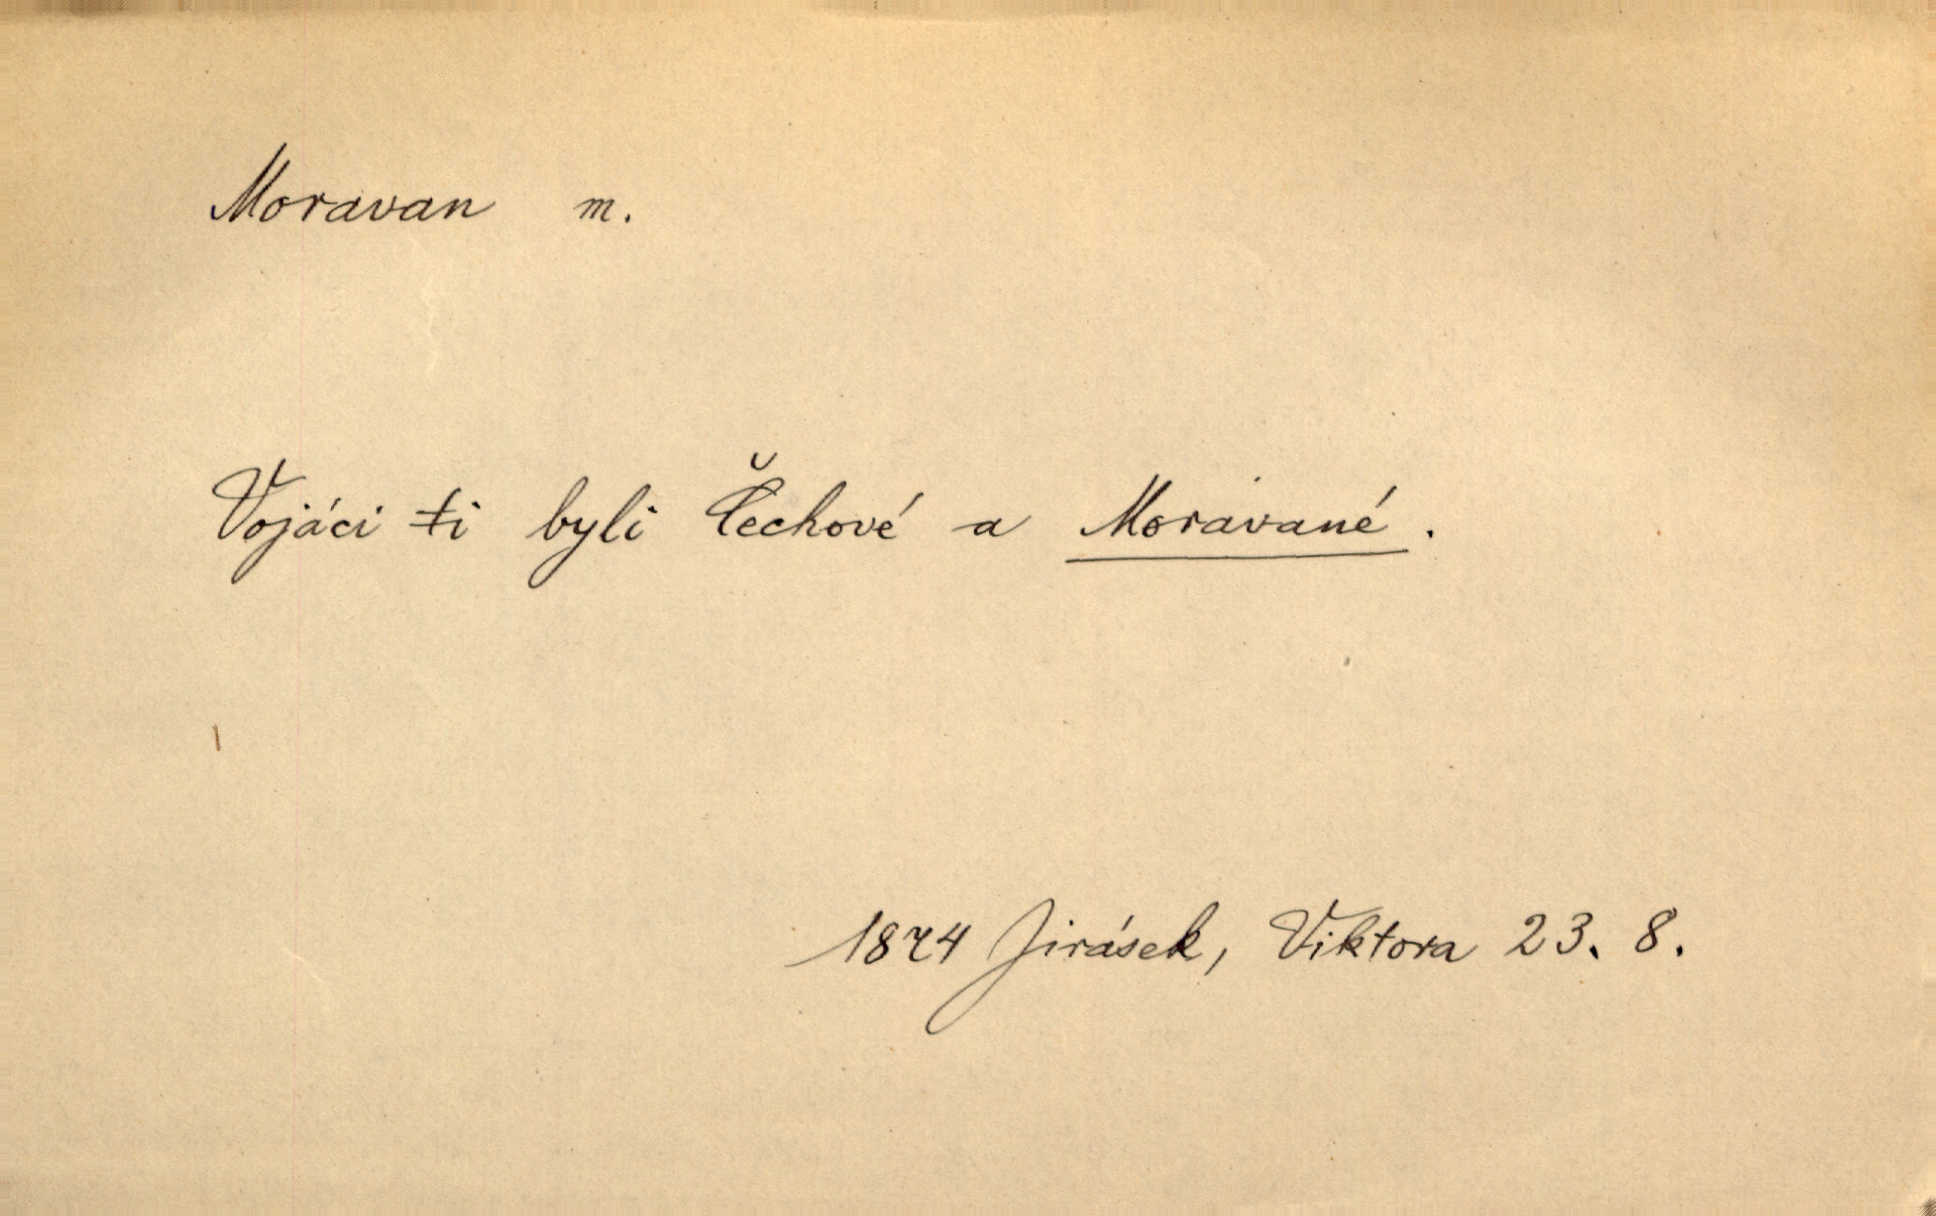 Moravan m.
Vojáci ti byli Čechové a Moravané.
1874 Jirásek, Viktora 23. 8.